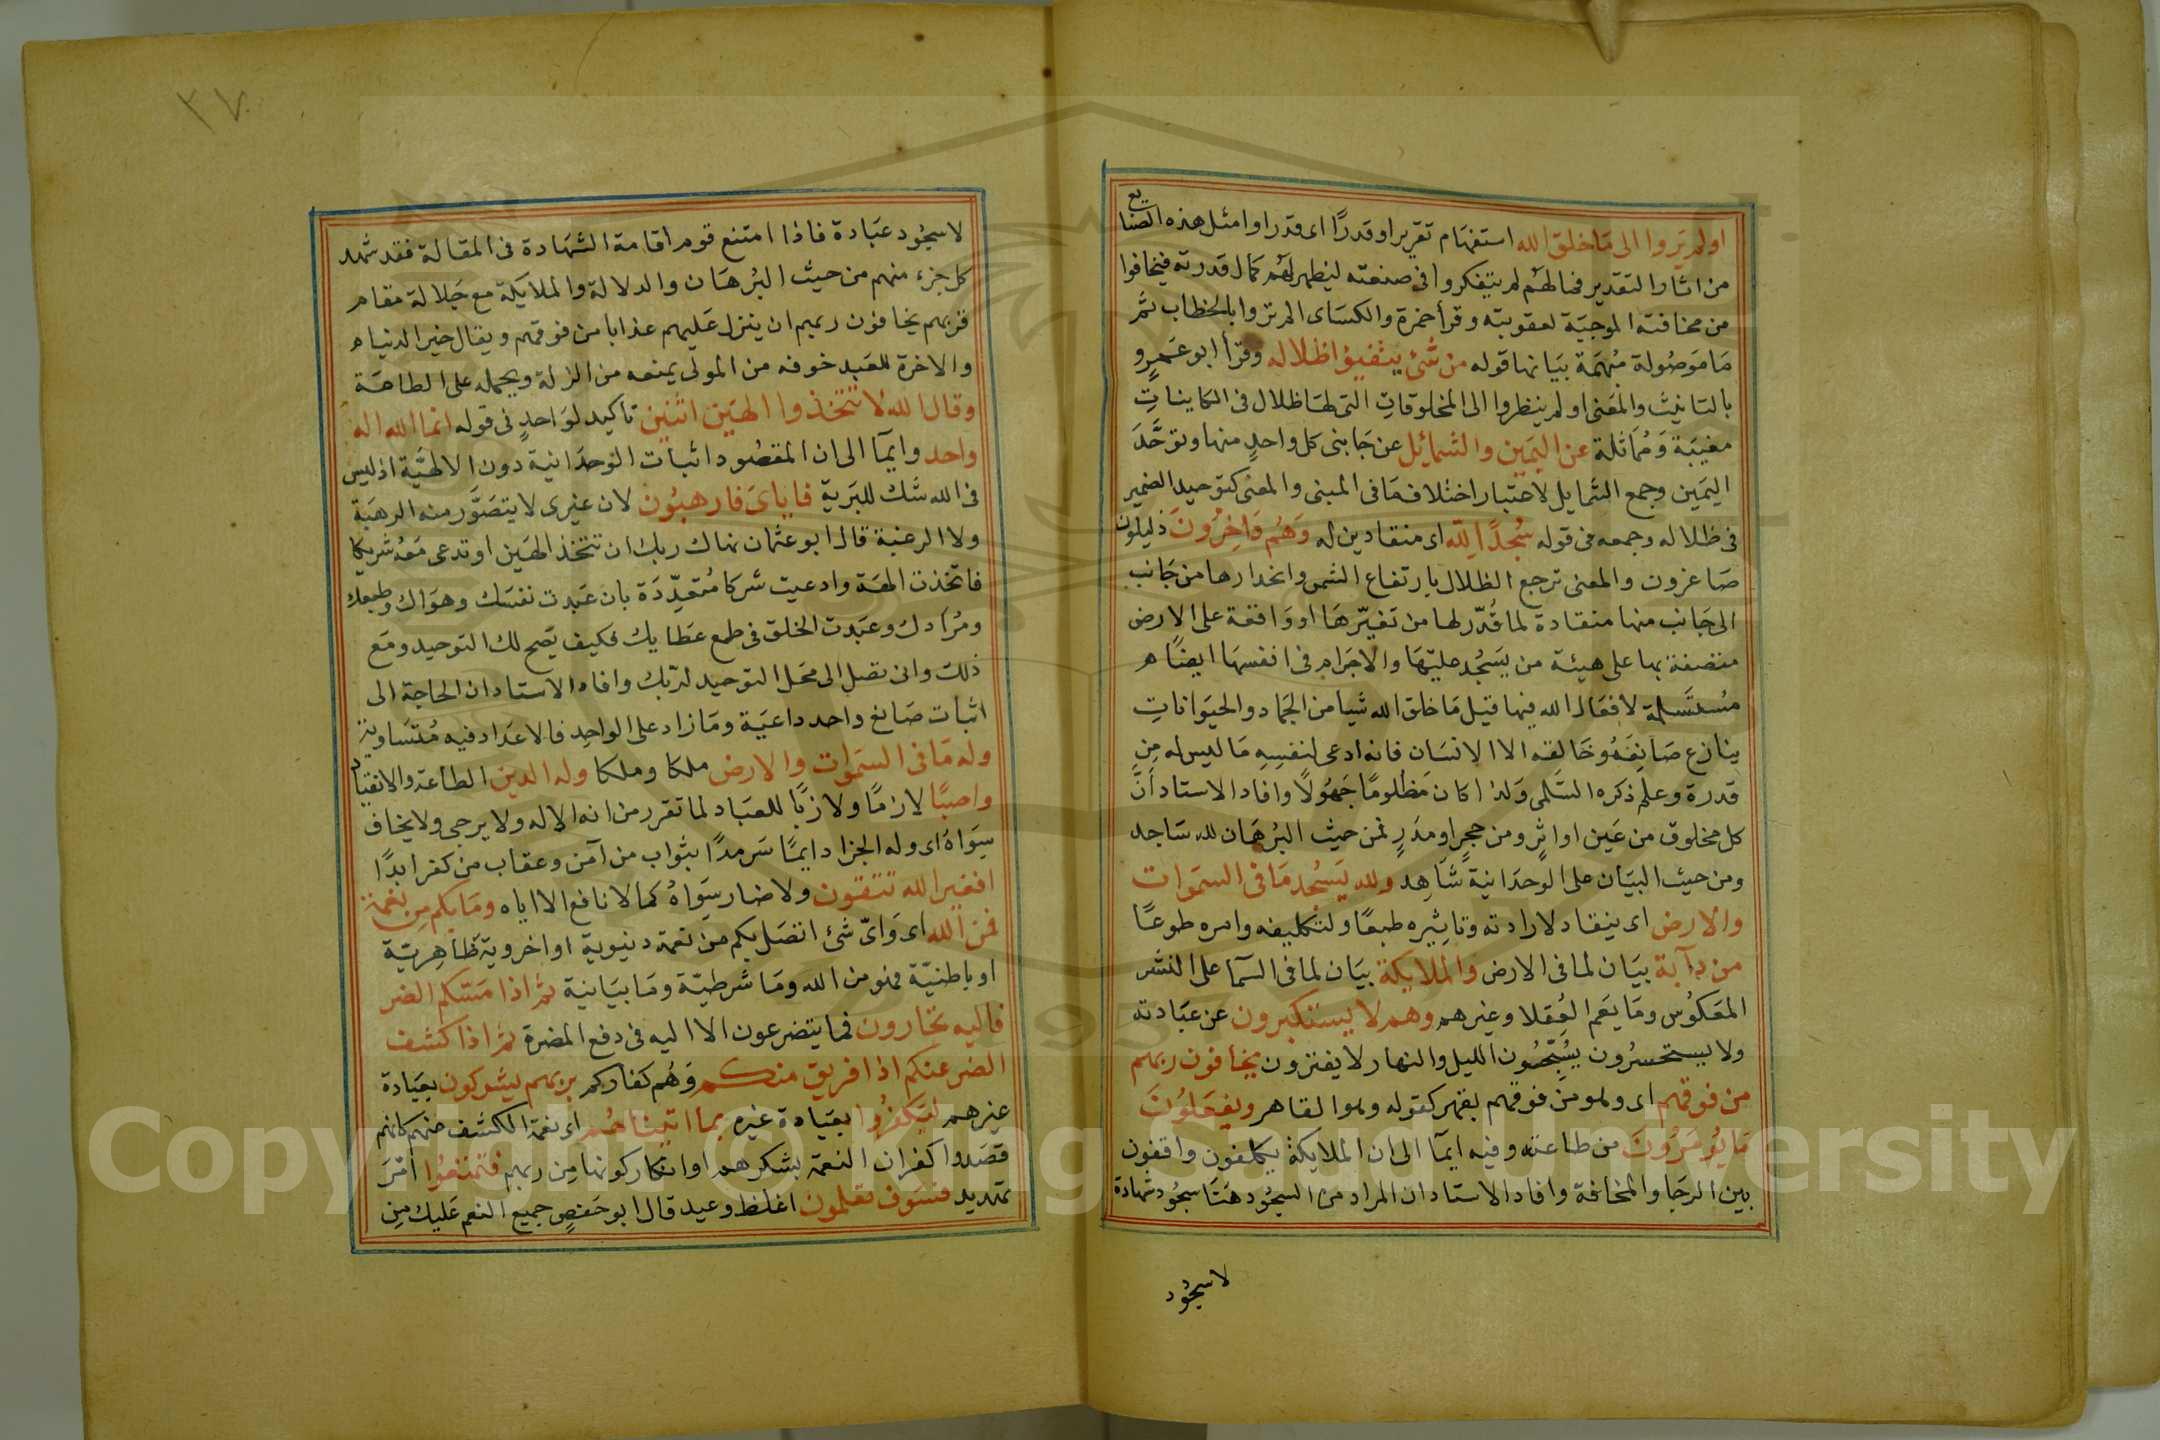 اولم يروا الى ما خلق الله استفهام تقرير او قدرًا اى قدراوا مثل هذه الصنايع
من اثار التقدير فما لهم لم يتفكروا فى صنعته ليظهر لهم كمال قدرته فيخافوا
من مخافته الموجبة لعقوبته وقرأ حمزة والكسَاى الم تروا بالخطاب ثم
مَا مَوصُولة مُبهَمة بيَانها قوله من شئ يتفيؤا ظلاله وقرأ ابو عَمرٍو
بالتانيث والمعَنى اولم ينظروا الى المخلوقاتِ التى لهَا ظلال فى الكاينَاتِ
مغيبَة وَمُمَاثلة عن اليَمين والشمائل عن جَانبى كل واحدٍ منها وتوحَّدَ
اليَمين وجمع الشمايل لاعتبار اختلافهمَا فى المبنى والمعنى كتوحيد الضمير
فى ظلاله وجمعه فى قوله سُجدًا لله اى منقادين له وَهُم دَاخِرُونَ ذليلون
صَاغرون والمعنى ترجع الظلال بارتفاع الشمس وانحدارها من جَانب
الى جَانب منها منقادة لما قُدّر لها من تغيّرهَا او وَاقعة على الارض
متصفة بها على هيئة من يَسَجُد عليهَا والاجرَام فى انفسهَا ايضًا
مُستسَلمة لافعَال الله فيها قيل مَا خلق الله شيا من الجمَاد والحيوَاناتِ
ينازع صَانِعَهُ وخَالقه الا الانسَان فانه ادعى لنفسِهِ مَا ليس له مِن
قدرة وعلم ذكره السُّلمى وَلذا كان مَظلومًا جَهُولًا وافاد الاستاد أنَّ
كل مخلوق من عَين او اثرٍ ومن حجرٍ او مدَرٍ فمن حيث البُرهَان لله سَاجد
ومن حيث البيَان على الوحدَانية شَاهِد ولله يَسَجُد مَا فى السمَوات
والارض اى ينقاد لارادته وتاثِيره طبعًا ولتكليفه وامره طوعًا
من دآبة بيَان لما فى الارض والملايكة بيَان لما فى السمآ على النشر
المعَكُوس ومَا يعَم العُقلا وغيرهم وهم لا يستكبرون عن عبَادته
ولا يستحسرُون يُسَبِّحُون الليل والنهار لا يفترون يخافون ربهم
من فوقهم اى وهو من فوقهم بقهر كقوله وهو القاهر ويفعَلوُنَ
مَا يُؤمَرُونَ من طاعته وفيه ايمآ الى ان الملايكة مكلفون واقفون
بين الرجَا والمخافة وافاد الاستاد ان المراد من السجُود هنَا سجُود شهادة
لاسجُود
٣٧
لاسجُود عبَادة فاذا امتنع قوم اقامة الشهَادة فى المقالة فقد شهد
كل جزء منهم من حيث البُرهَان والدلالة والملايكة مع جَلالة مقام
قربهم يخافون ربهم ان ينزل عَليهم عذابا من فوقهم ويقال خير الدنيا
والاخرة للعَبد خوفه من المولى يمنعه من الزلة ويحمله على الطاعَة
وقال الله لا تتخذوا الهين اثنين تاكيد لوَاحدٍ فى قوله انما الله اله
واحد وايمآ الى ان المقصُود اثبات الوَحدَانية دون الالهيَّة اذ ليس
فى الله شك للبَرية فاياىَ فارهبُون لان غيرى لا يتصَوَّر منه الرهبَة
ولا الرغبة قال ابو عثمان نهاك ربك ان تتخذ الهَين او تدعى مَعَهُ شريكا
فاتخذت الهَة وادعيت شركا مُتعَدِّدَة بان عَبدت نفسَك وهوَاك وطبعك
ومُرَادك وعبَدت الخلق فى طمع عطَايك فكيف يَصح لك التوحيد ومَع
ذلك وانى تصل الى محَل التوحيد لربّك وافاد الاستاد ان الحاجة الى
اثبات صَانع واحد داعيَة ومَا زاد على الواحِد فالاعدَاد فيه مُتَسَاوية
وله مَا فى السمَوات والارض ملكا وملكا وله الدين الطاعة والانقياد
واصبًا لازمًا ولازبًا للعبَاد لما تقرر من انه الاله ولا يرجى ولا يخاف
سِوَاهُ اى وله الجزا دايمًا سَرمدًا بثواب من آمن وعقاب من كفر ابدًا
افغير الله تتقون ولا ضار سِوَاهُ كما لا نافع الا اياه ومَا بكم مِن نعمة
فمن الله اى وَاىّ شئ اتصَل بكم من نعمة دنيوية او اخروية ظاهِريّة
او باطنيّة فهو من الله ومَا شرطيّة ومَا بيَانية ثم اذا مَسّكم الضر
فاليه تجارون فما يتضرعون الا اليه فى دفع المضرة ثم اذا كشف
الضر عنكم اذا فريق منكم وَهُم كفاركم بربهم يشركون بعِبَادة
غيرهم ليَكفرُوا بعبَادة غيره بما اتينَاهُم اى نعَمة الكشف عنهم كانهم
قصَدوا كفران النعمة بشكرهم او انكار كونها مِن ربهم فتمتعُوا امْرَ
تهديد فسَوف تعلمون اغلظ وعيد قال ابو حَفصٍ جميع النعم عَليك مِن
Copyright © King Saud University